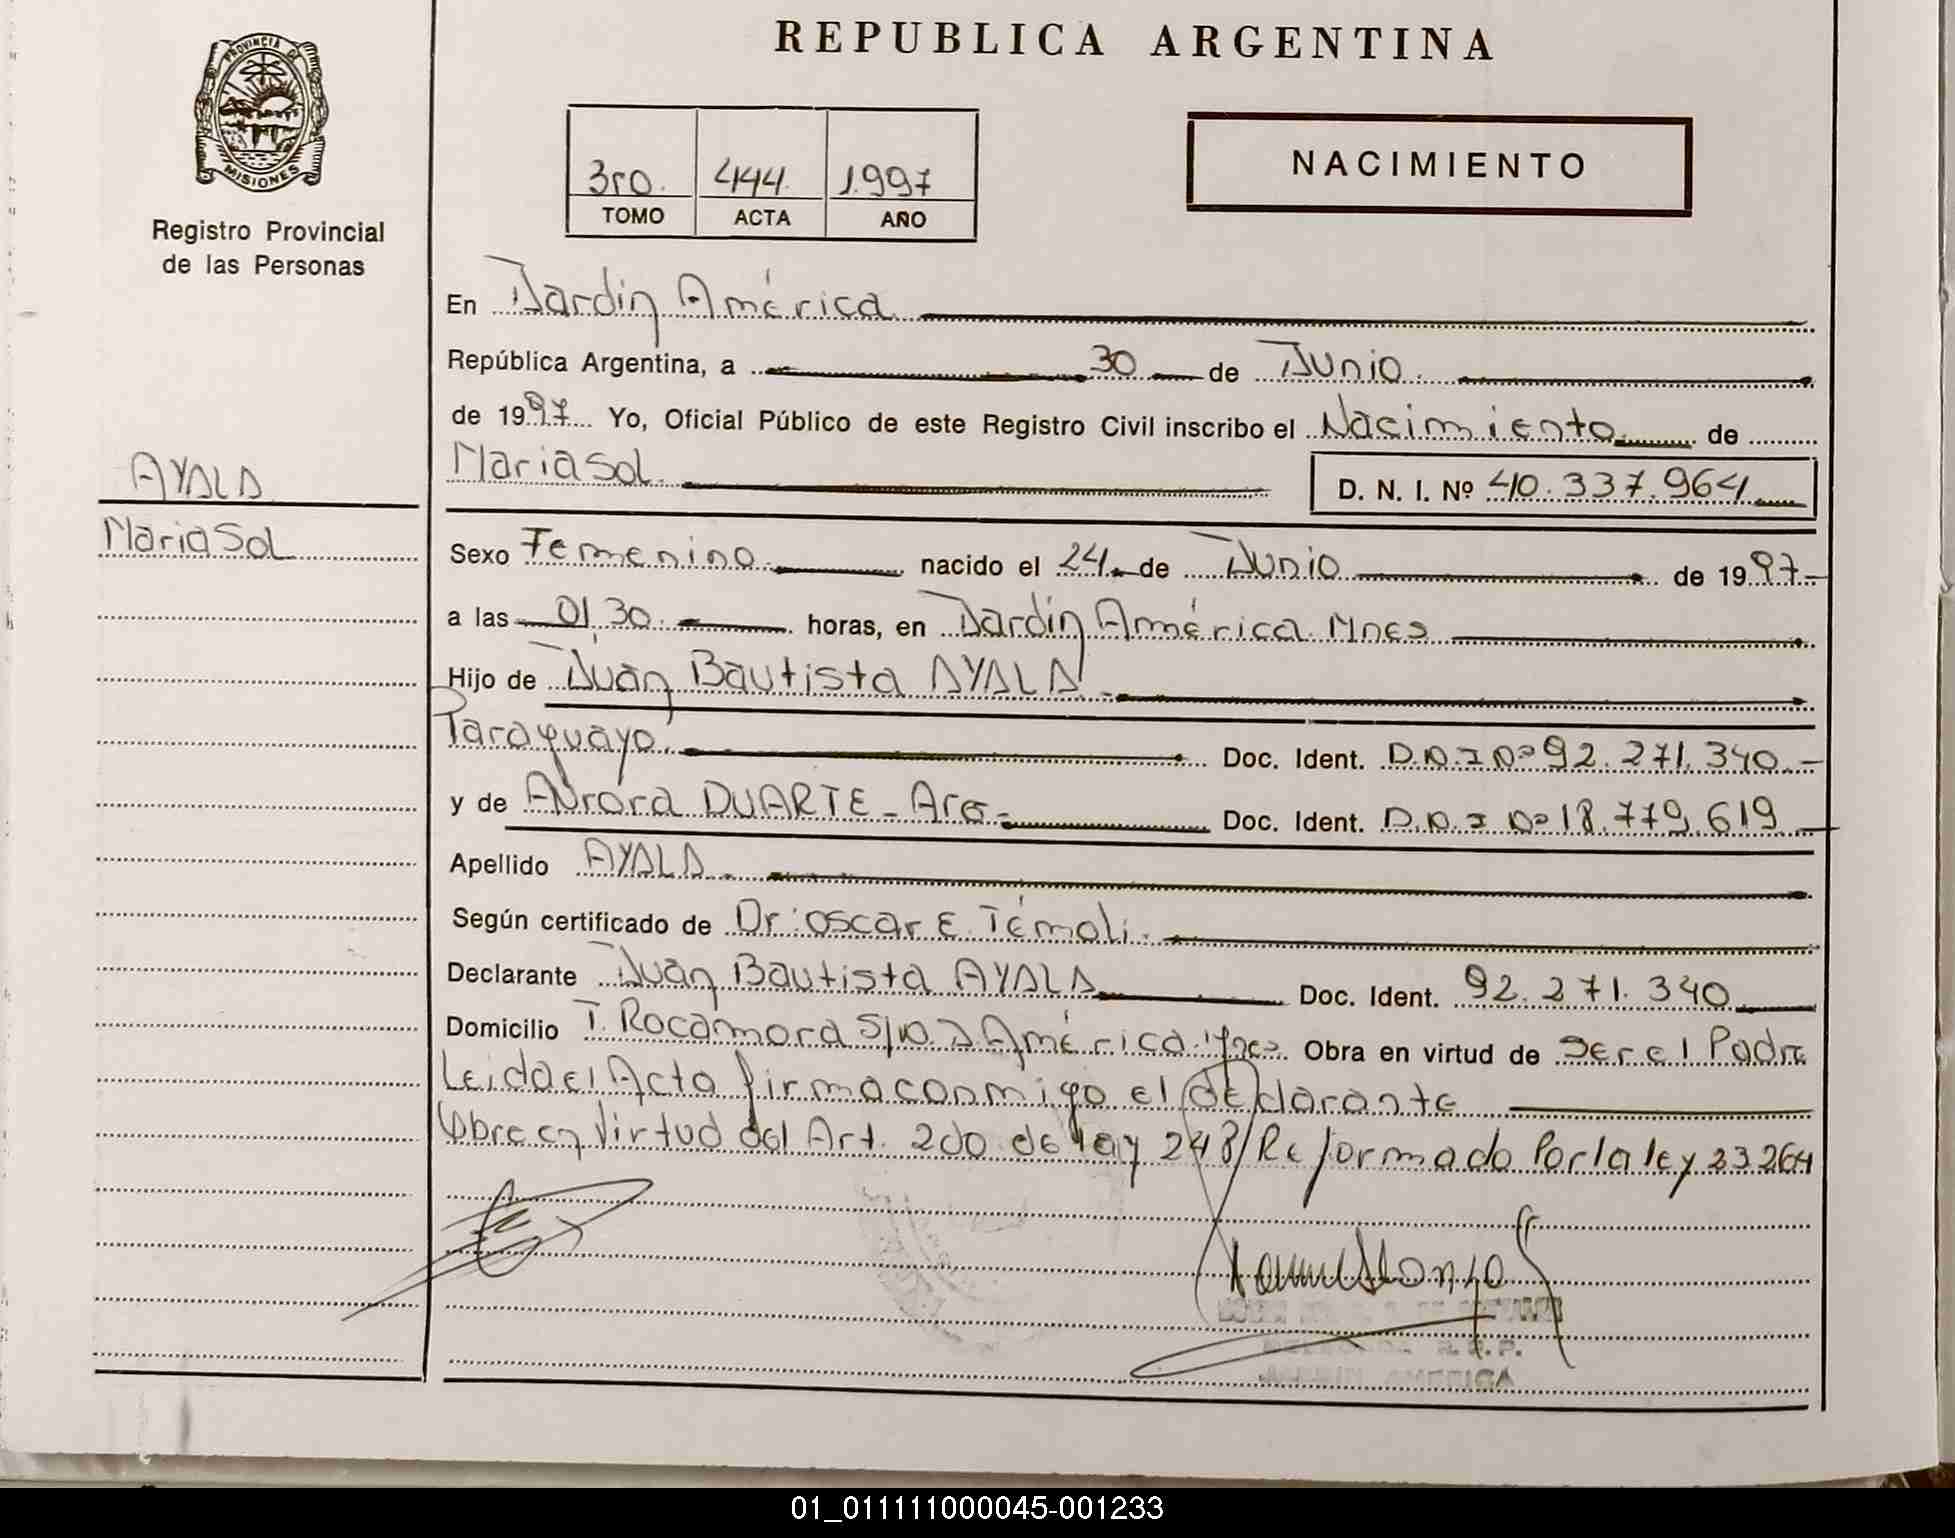 REPUBLICA ARGENTINA
PROVINCIA DE
MISIONES
Registro Provincial
de las Personas
3ro. 444. 1.997
TOMO ACTA AÑO
NACIMIENTO
En Jardín América
República Argentina, a 30 de Junio
de 1997 Yo, Oficial Público de este Registro Civil inscribo el Nacimiento de
Maria Sol D. N. I. Nº 40.337.964
AYALA
Maria Sol
Sexo Femenino nacido el 24 de Junio de 1997
a las 01,30 horas, en Jardín América Mnes
Hijo de Juan Bautista AYALA
Paraguayo Doc. Ident. D.N.I Nº 92.271.340.-
y de Aurora DUARTE - Arg - Doc. Ident. D.N.I Nº 18.779.619
Apellido AYALA
Según certificado de Dr: Oscar E. Témoli.
Declarante Juan Bautista AYALA Doc. Ident. 92.271.340
Domicilio T. Rocamora S/N. J América Mnes Obra en virtud de Ser el Padre
Leida el Acta firma conmigo el declarante
Obre en Virtud del Art. 2do de ley 248/Reformado Por la ley 23264
R.P.
01_011111000045-001233